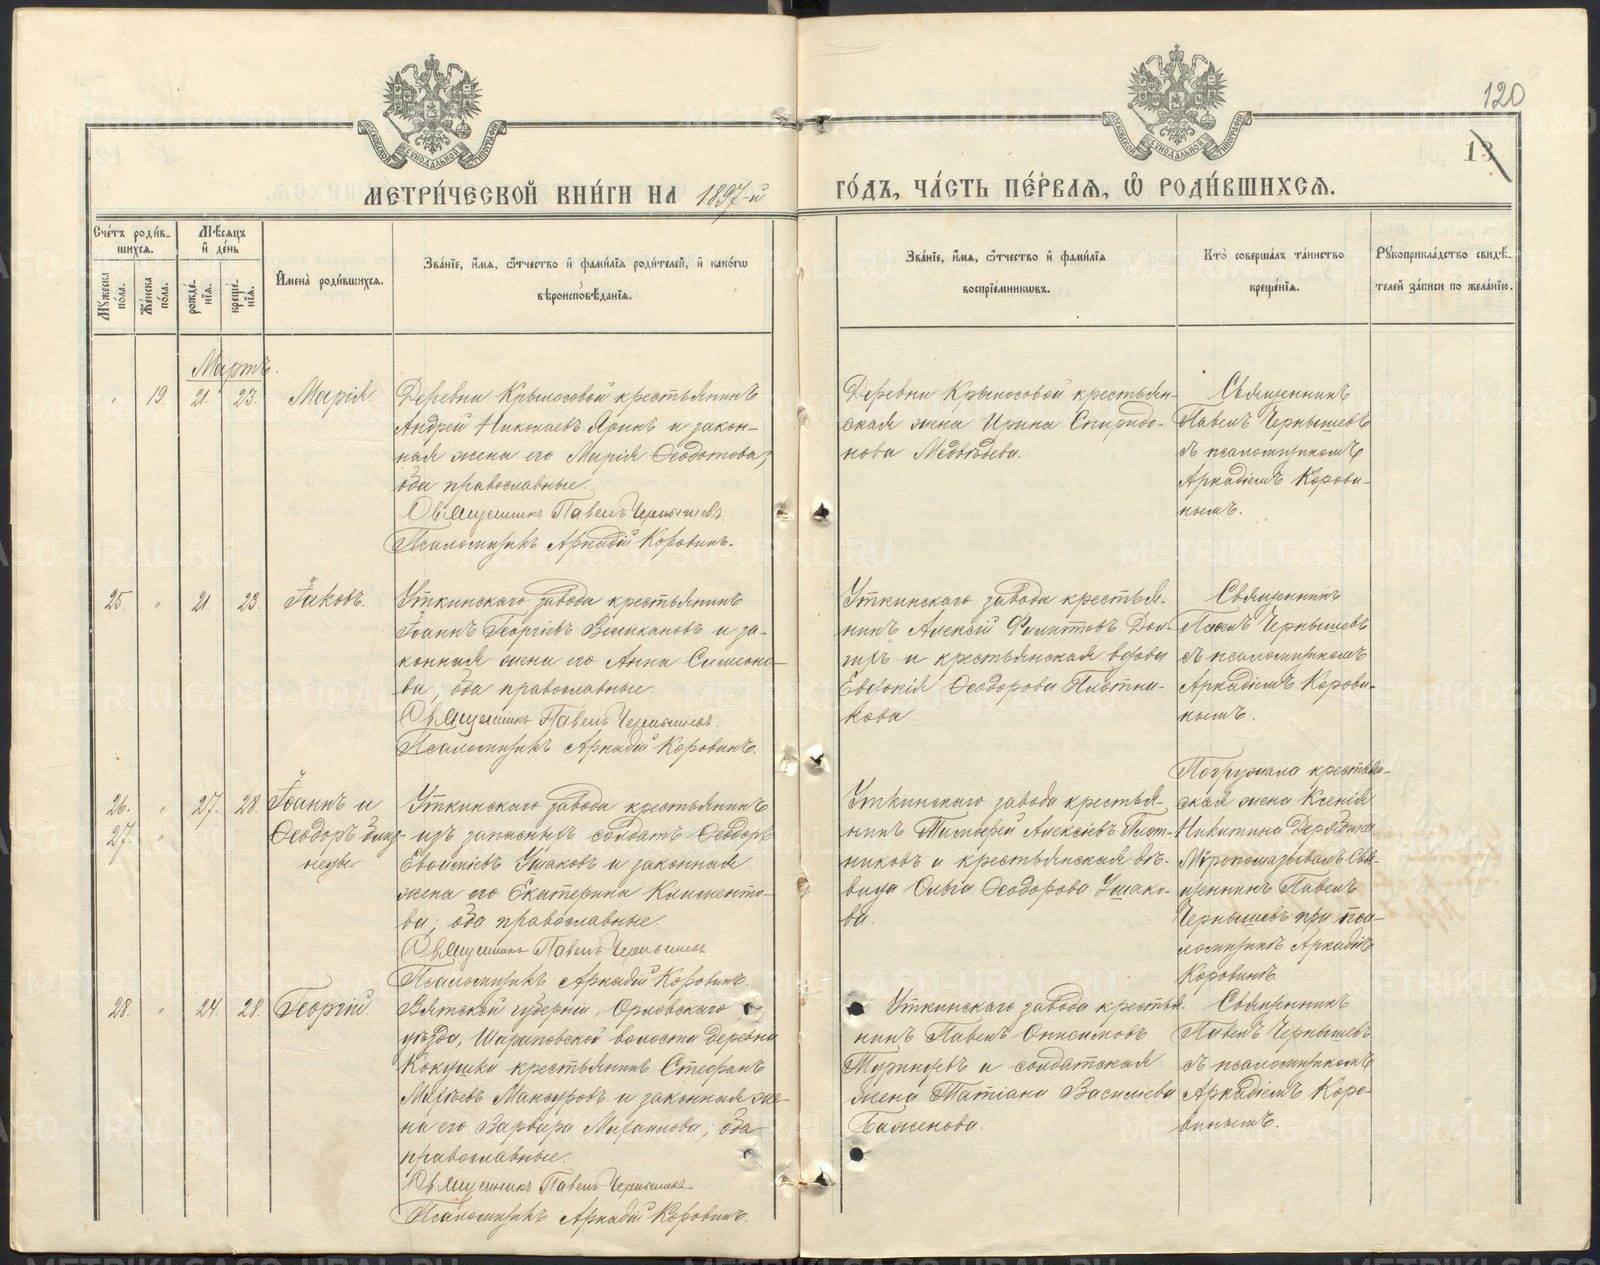 120
13
МОСКОВСКОЙ СѴНОДАЛЬНОЙ ТИПОГРАФІИ
МОСКОВСКОЙ СѴНОДАЛЬНОЙ ТИПОГРАФІИ
МЕТРИ́ЧЕСКОЙ КНИ́ГИ НА 1897-й
ГО́ДЪ, ЧА́СТЬ ПЕ́РВАЯ, Ѽ РОДИ́ВШИХСЯ.
Сче́тъ роди́в-
шихся.
Мѣсяцъ
и҆ де́нь
Мꙋжеска по́ла.
Же́нска по́ла.
рожде́нїя.
креще́нїя.
И҆мена̀ роди́вшихся.
Зва́нїе, и҆́мя, ѻ҆́тчество и҆ фами́лїя роди́телей, и҆ како́гѡ
вѣроисповѣ́данїя.
Зва́нїе, и҆́мя, ѻ҆́тчество и҆ фами́лїя
воспрїе́мникѡвъ.
Кто̀ соверша́лъ та́инство
креще́нїя.
Рꙋкоприкла́дство свидѣ́-
телей за́писи по жела́нїю.
Мартъ.
" 19. 21. 23. Марія.
Деревни Крылосовой крестьянинъ
Андрей Николаевъ Яринъ и закон-
ная жена его Марія Ѳеодотова;
оба православные.
Священникъ Павелъ Чернышевъ.
Псаломщикъ Аркадій Коровинъ.
Деревни Крылосовой крестьян-
ская жена Ирина Спиридо-
нова Медвѣдева.
Священникъ
Павелъ Чернышевъ
съ псаломщикомъ
Аркадіемъ Корови-
нымъ.
25. " 21. 23. Іаковъ.
Уткинскаго завода крестьянинъ
Іоаннъ Георгіевъ Великановъ и за-
конная жена его Анна Симеоно-
ва; оба православные.
Священникъ Павелъ Чернышевъ.
Псаломщикъ Аркадій Коровинъ.
Уткинскаго завода крестья-
нинъ Алексій Филипповъ
и крестьянская вдова
Евдокія Ѳеодорова Плотни-
кова.
Священникъ
Павелъ Чернышевъ
съ псаломщикомъ
Аркадіемъ Корови-
нымъ.
26. " 27. 28. Іоаннъ и
27. " Ѳеодоръ близ-
нецы
Уткинскаго завода крестьянинъ
изъ запасныхъ солдатъ Ѳеодоръ
Евсиміевъ Ушаковъ и законная
жена его Екатерина Клименто-
ва; оба православные.
Священникъ Павелъ Чернышевъ
Псаломщикъ Аркадій Коровинъ.
Уткинскаго завода крестья-
нинъ Тимоѳей Алексіевъ Плот-
никовъ и крестьянская дѣ-
вица Ольга Ѳеодорова Ушако-
ва.
Погружала крестьян-
ская жена Ксенія
Никитина Дерябина.
Мѵропомазывалъ Свя-
щенникъ Павелъ
Чернышевъ при пса-
ломщикѣ Аркадіѣ
Коровинѣ.
28. " 24. 28. Георгій.
Вятской губерніи, Орловскаго
уѣзда, Шараповской волости деревни
Кокушки крестьянинъ Стефанъ
Мансуровъ и законная же-
на его Варвара Михаилова; оба
православные.
Священникъ Павелъ Чернышевъ
Псаломщикъ Аркадій Коровинъ.
Уткинскаго завода крестья-
нинъ Павелъ Онисимовъ
и солдатская
жена Татіана Василіева
Баженова.
Священникъ
Павелъ Чернышевъ
съ псаломщикомъ
Аркадіемъ Коро-
винымъ.